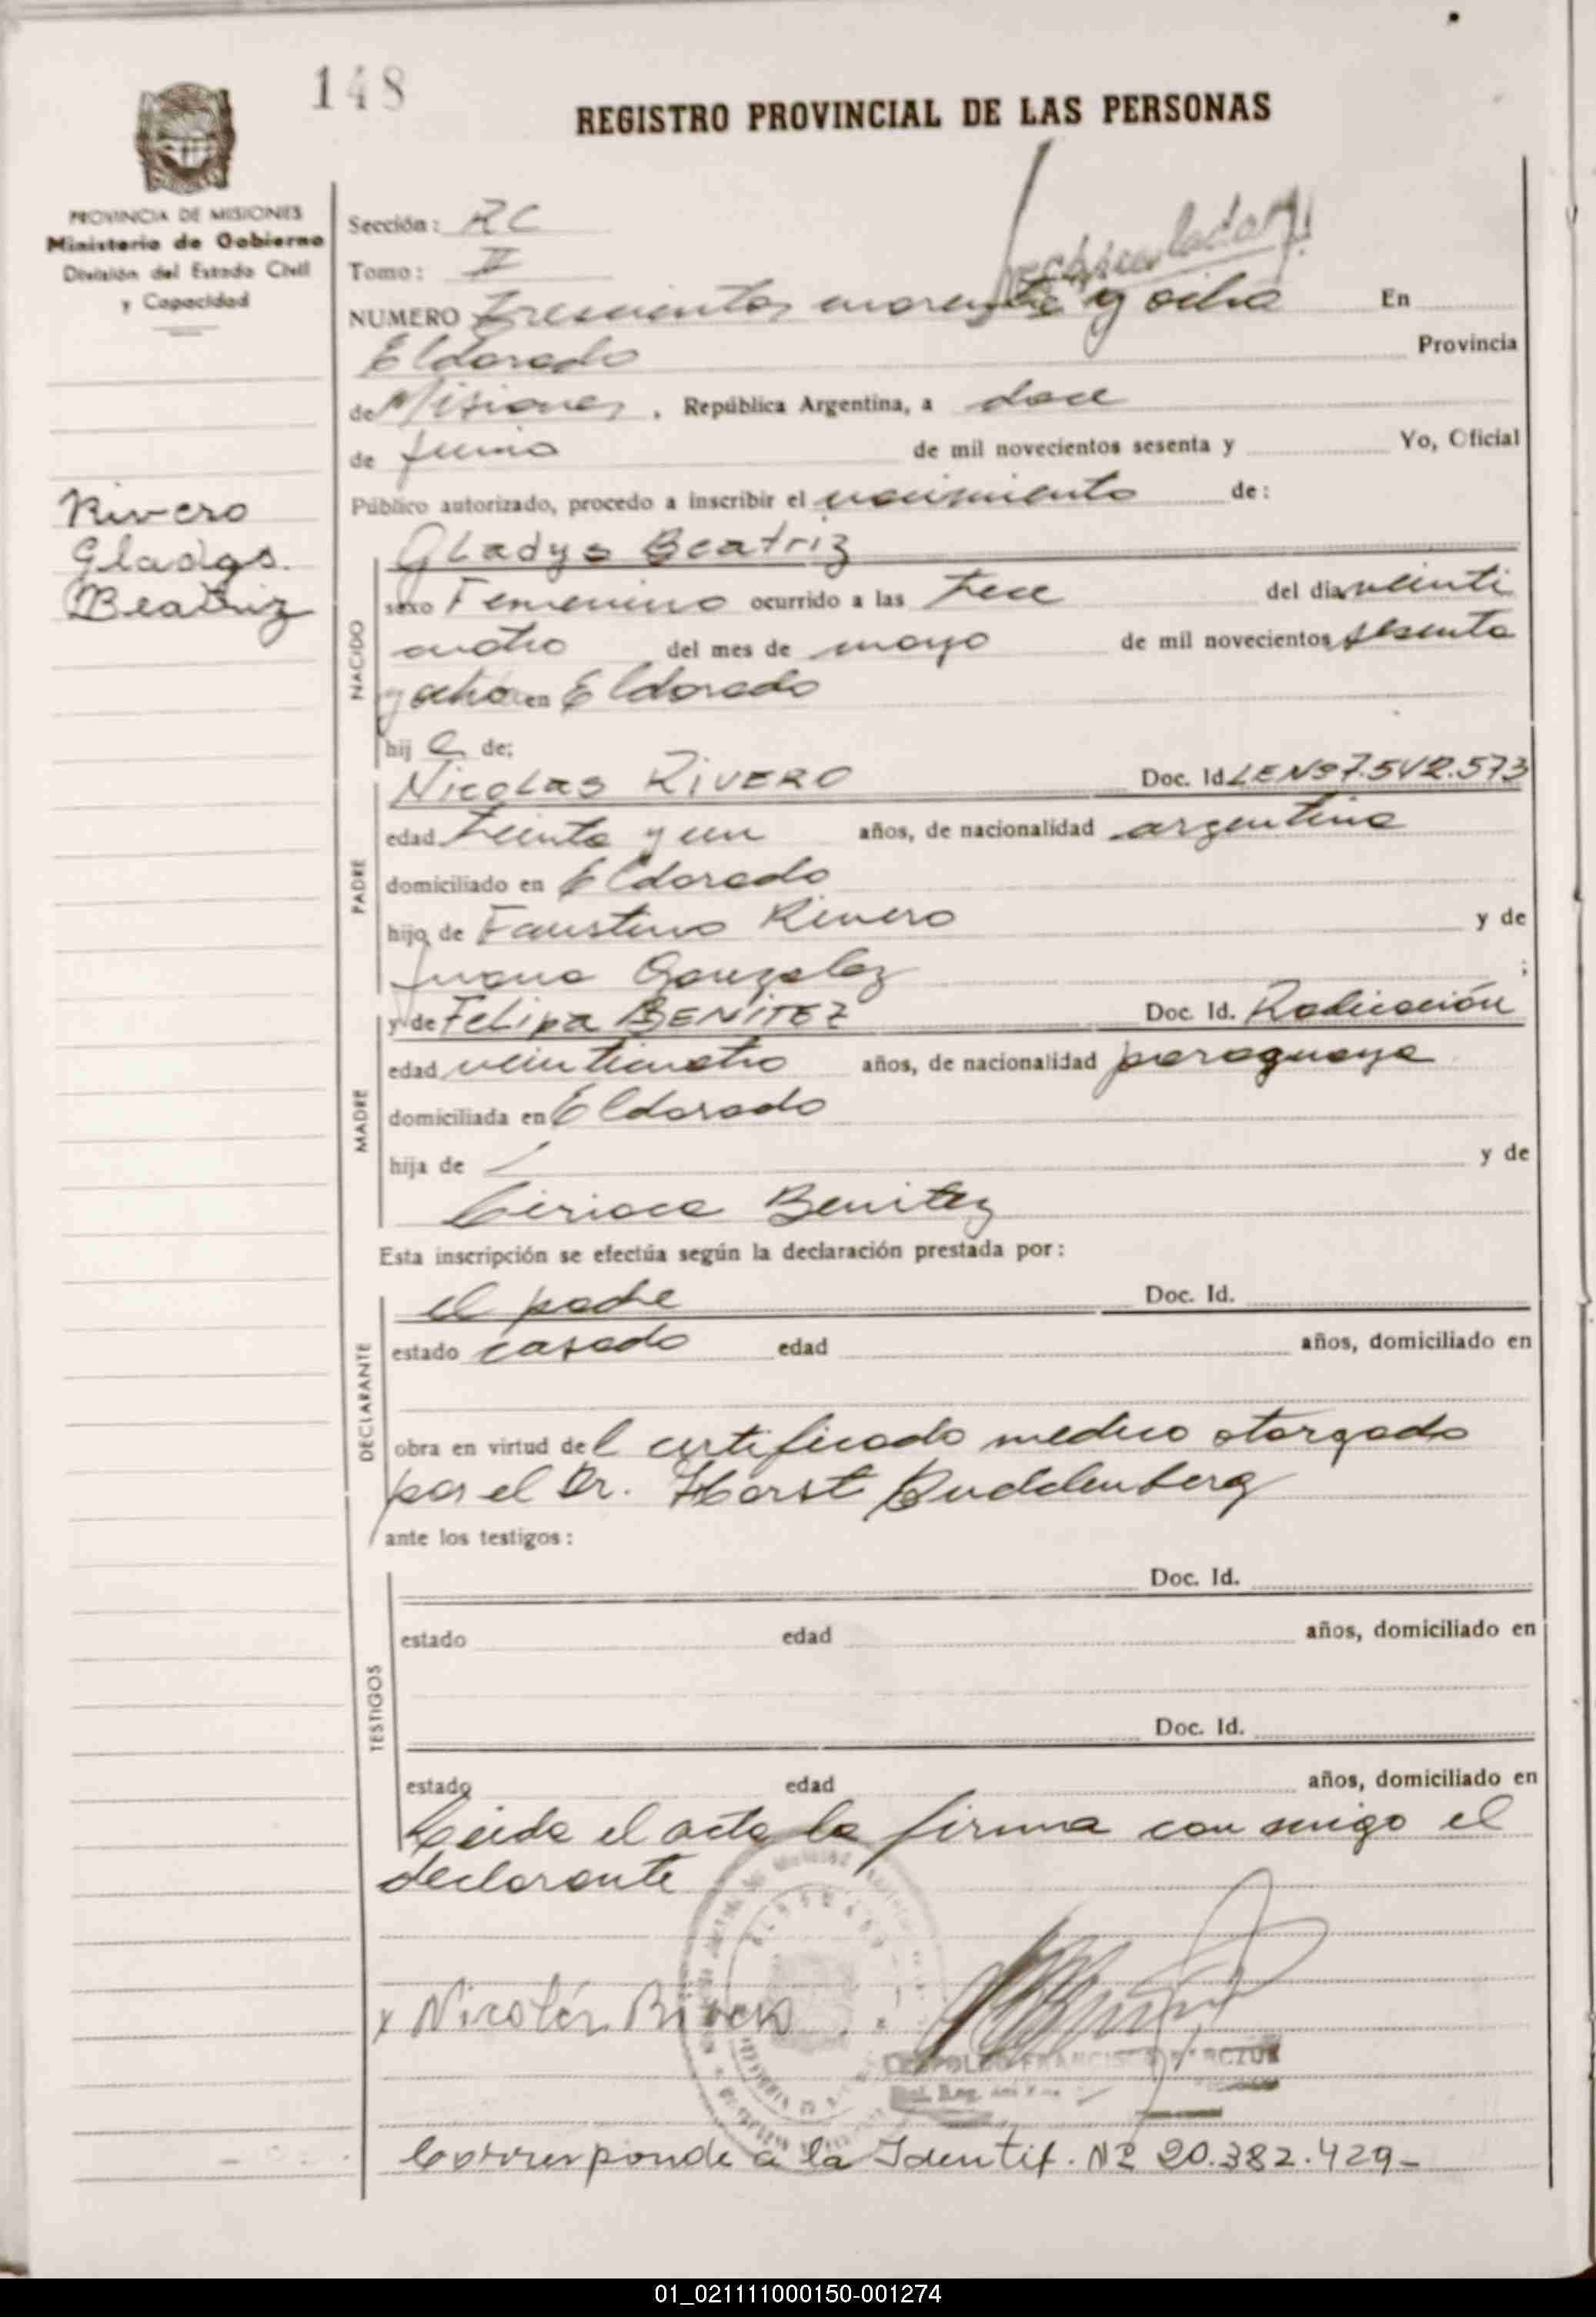 148
REGISTRO PROVINCIAL DE LAS PERSONAS
PROVINCIA DE MISIONES
Ministerio de Gobierno
División del Estado Civil
y Capacidad
Sección: RC
Tomo: II
NUMERO Trescientos noventa y ocho En
Eldorado Provincia
de Misiones, República Argentina, a doce
de Junio de mil novecientos sesenta y Yo, Oficial
Público autorizado, procedo a inscribir el nacimiento de:
Rivero
Gladys.
Beatriz
NACIDO
Gladys Beatriz
sexo Femenino ocurrido a las trece del dia veinti
cuatro del mes de mayo de mil novecientos sesenta
y ocho en Eldorado
hij a de:
PADRE
Nicolas RIVERO Doc. Id. LE Nº 7.542.573
edad treinta y un años, de nacionalidad argentina
domiciliado en Eldorado
hijo de Faustino Rivero y de
Juana Gonzalez ;
MADRE
y de Felipa BENITEZ Doc. Id. Radicación
edad veinticuatro años, de nacionalidad paraguaya
domiciliada en Eldorado
hija de y de
Ciriaca Benitez
Esta inscripción se efectúa según la declaración prestada por:
DECLARANTE
el padre Doc. Id.
estado casado edad años, domiciliado en
obra en virtud del certificado medico otorgado
por el Dr. Horst Buddenberg
ante los testigos:
TESTIGOS
Doc. Id.
estado edad años, domiciliado en
Doc. Id.
estado edad años, domiciliado en
Leida el acta la firma con migo el
declarante
x Nicolás Rivero
LEOPOLDO FRANCISCO
Corresponde a la Identif. Nº 20.382.429-
01_021111000150-001274